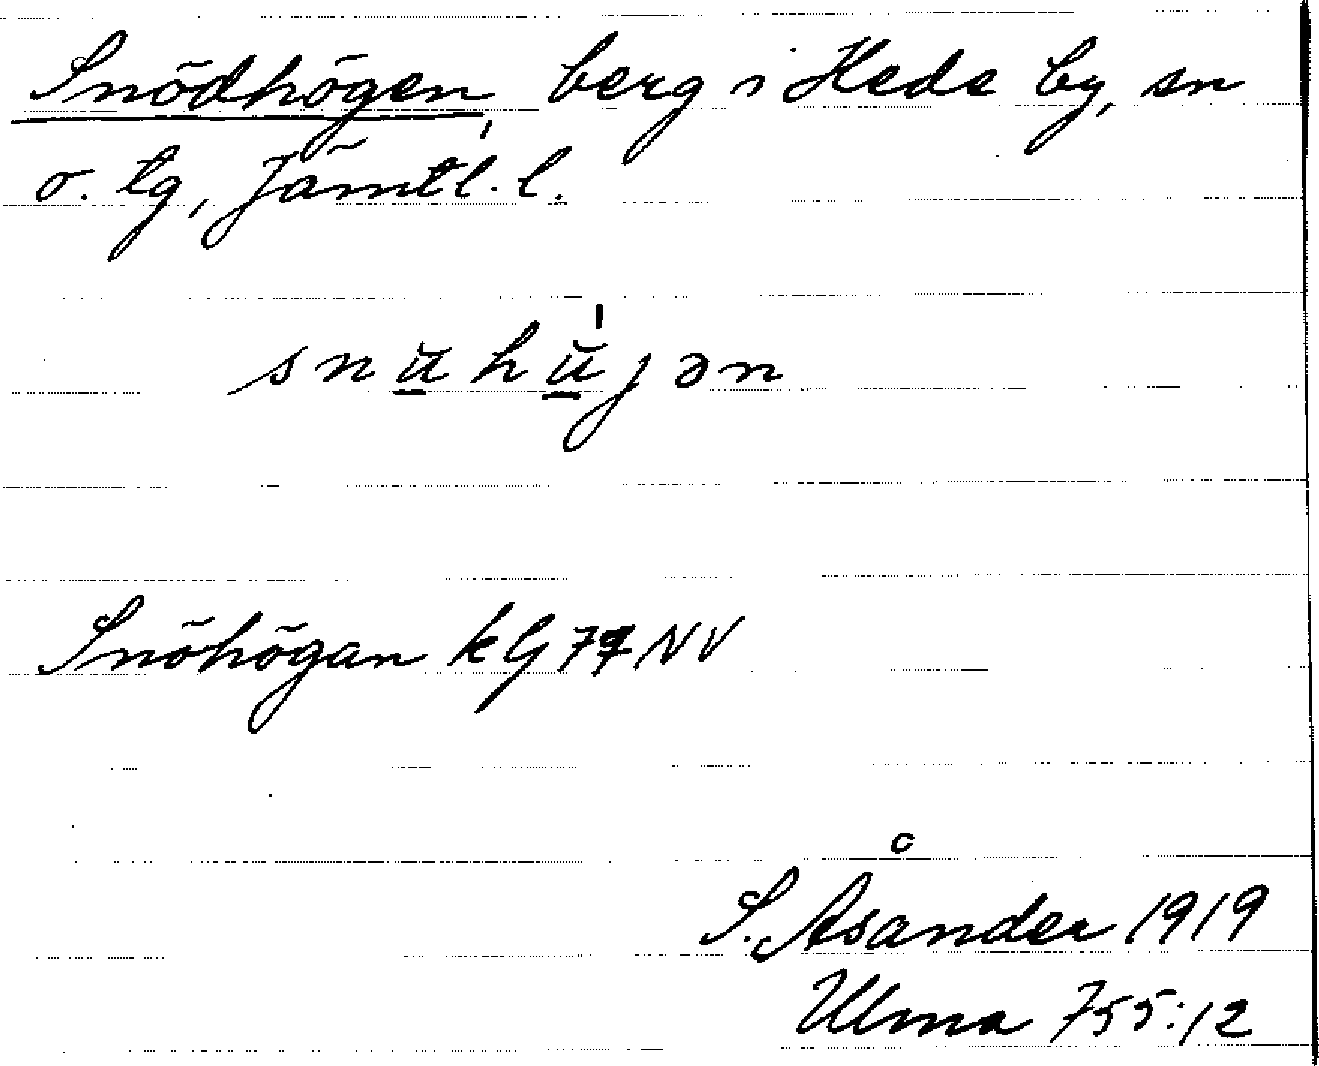 Snödhögen, berg i Hede by, sn
o. tg, Jämtl. l.
snu̲hu̲̇jən
Snöhögan kG 77 NV
S. Åsander 1919
Ulma 755:12